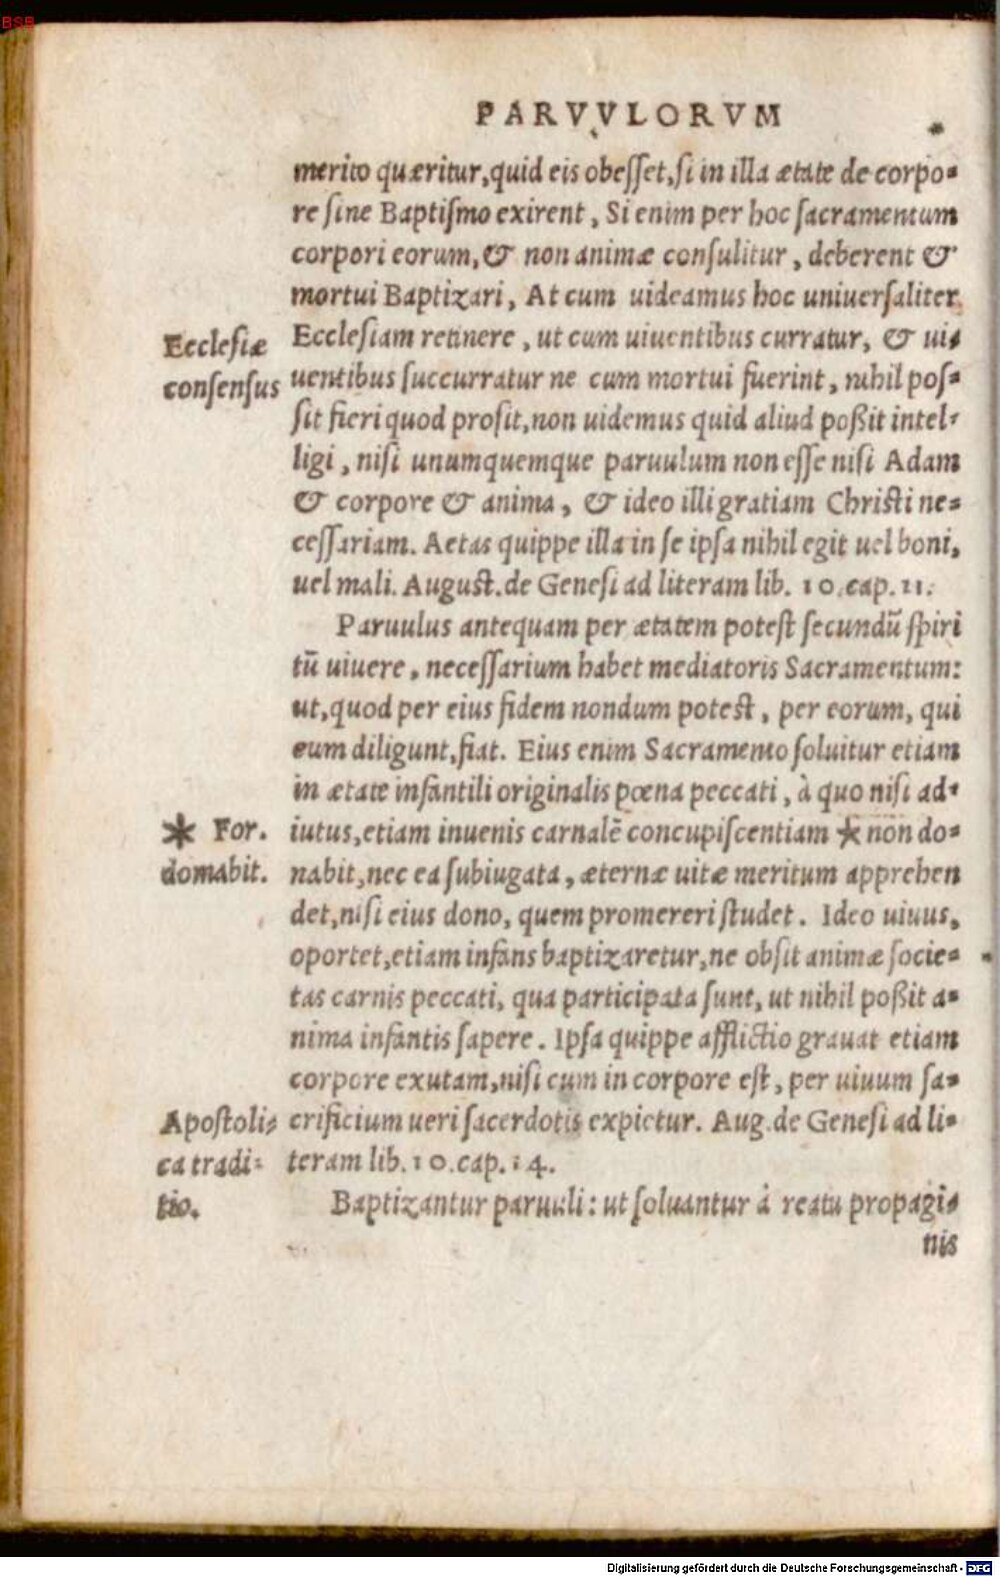 BSB
PARVVLORVM
merito quæritur, quid eis obesset, si in illa ætate de corpo-
re sine Baptismo exirent, Si enim per hoc sacramentum
corpori eorum, & non animæ consulitur, deberent &
mortui Baptizari, At cum uideamus hoc uniuersaliter
Ecclesiæ
consensus
Ecclesiam retinere, ut cum uiuentibus curratur, & ui-
uentibus succurratur ne cum mortui fuerint, nihil pos-
sit fieri quod prosit, non uidemus quid aliud poßit intel-
ligi, nisi unumquemque paruulum non esse nisi Adam
& corpore & anima, & ideo illi gratiam Christi ne-
cessariam. Aetas quippe illa in se ipsa nihil egit uel boni,
uel mali. August. de Genesi ad literam lib. 10. cap. 11.
Paruulus antequam per ætatem potest secundū spiri
tū uiuere, necessarium habet mediatoris Sacramentum:
ut, quod per eius fidem nondum potest, per eorum, qui
eum diligunt, fiat. Eius enim Sacramento soluitur etiam
in ætate infantili originalis pœna peccati, à quo nisi ad-
* For.
domabit.
iutus, etiam iuuenis carnalē concupiscentiam * non do-
nabit, nec ea subiugata, æternæ uitæ meritum apprehen
det, nisi eius dono, quem promereri studet. Ideo uiuus,
oportet, etiam infans baptizaretur, ne obsit animæ socie-
tas carnis peccati, qua participata sunt, ut nihil poßit a-
nima infantis sapere. Ipsa quippe afflictio grauat etiam
corpore exutam, nisi cum in corpore est, per uiuum sa-
Apostoli-
ca tradi-
tio.
crificium ueri sacerdotis expietur. Aug. de Genesi ad li-
teram lib. 10. cap. 14.
Baptizantur paruuli: ut soluantur à reatu propagi-
nis
Digitalisierung gefördert durch die Deutsche Forschungsgemeinschaft - DFG